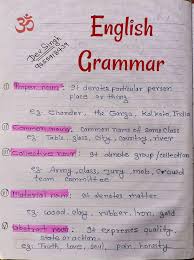 ॐ
English
Grammar
Dev Singh
① Proper noun: It denotes particular person
place or thing
eg. Chander, the Ganga, Kolkata, India
② Common noun: Common name of same class
Table, glass, city, country, river
③ Collective noun: It denote group / collection
eg. Army, class, Jury, mob, crowd
team committee
④ Material noun: It denotes matter
eg. wood, clay, rubber, Iron, gold
⑤ Abstract noun: It expresses quality,
state or action
eg. Truth, love, soul, pain, honesty